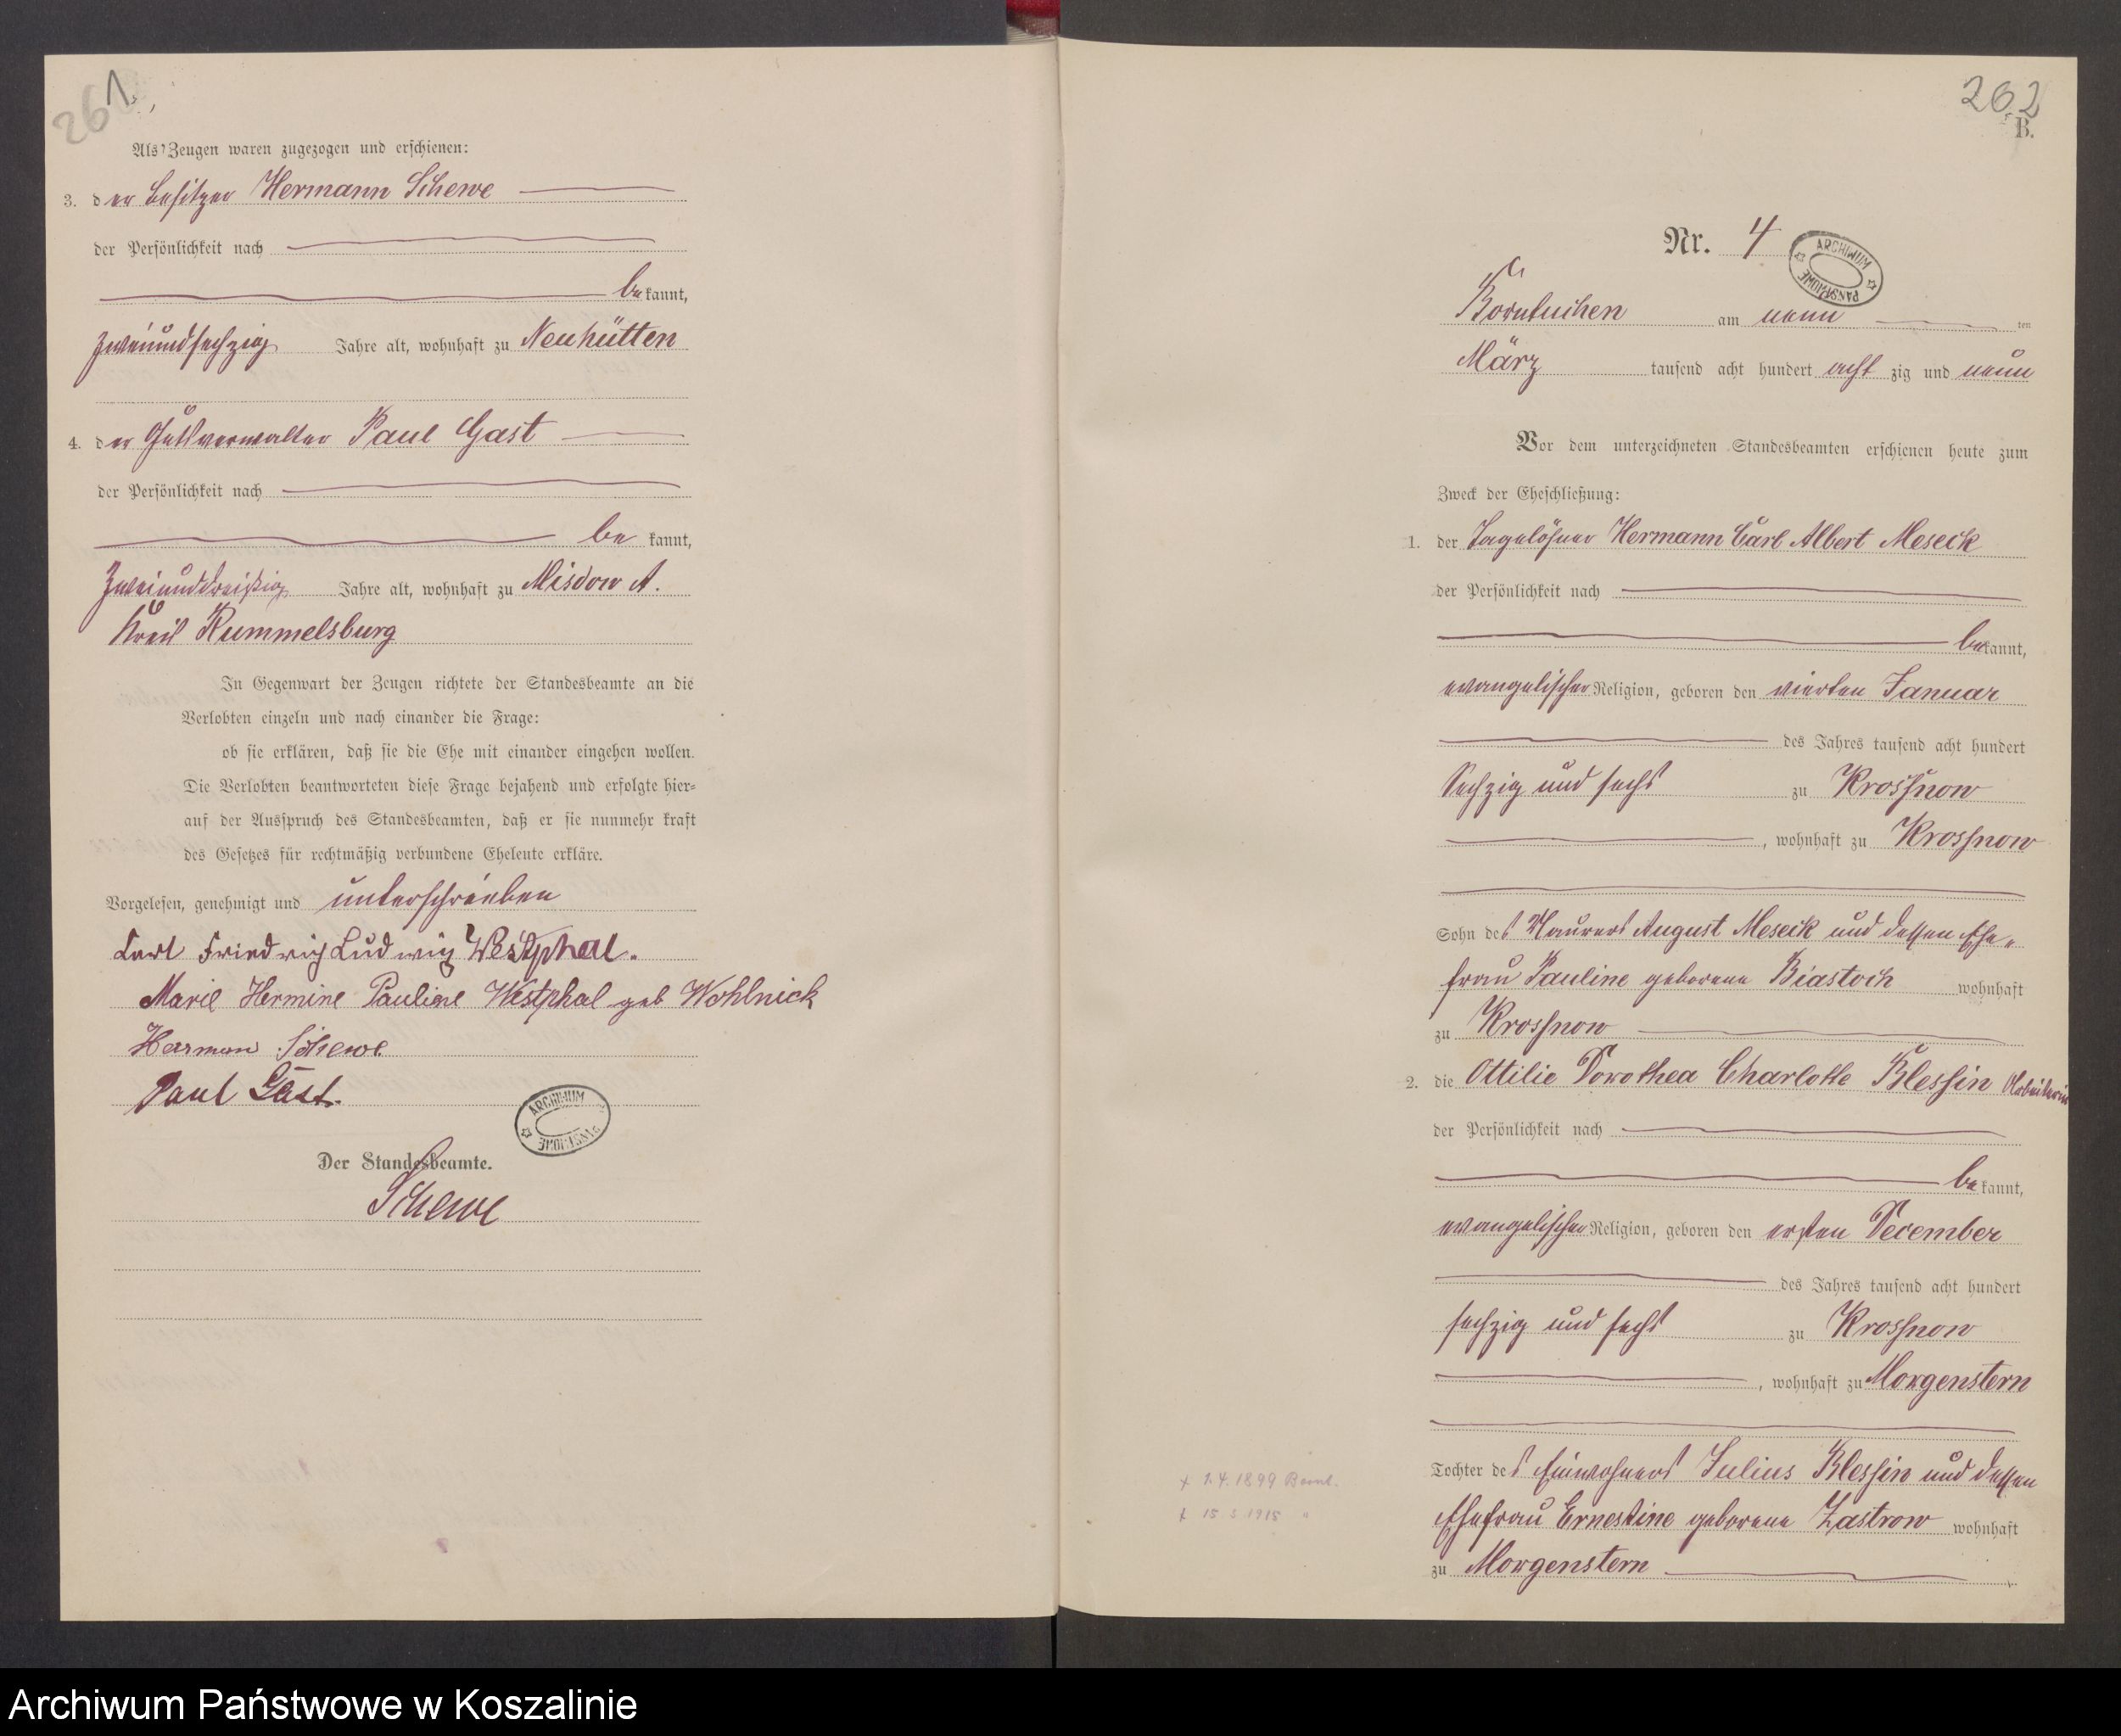 261.
Als Zeugen waren zugezogen und erschienen:
3. der Besitzer Hermann Schewe
der Persönlichkeit nach
bekannt,
zweiundsechzig Jahre alt, wohnhaft zu Neuhütten
4. der Gutsverwalter Paul Gast
der Persönlichkeit nach
be kannt,
Zweiunddreißig Jahre alt, wohnhaft zu Misdow A.
Kreis Rummelsburg
In Gegenwart der Zeugen richtete der Standesbeamte an die
Verlobten einzeln und nach einander die Frage:
ob sie erklären, daß sie die Ehe mit einander eingehen wollen.
Die Verlobten beantworteten diese Frage bejahend und erfolgte hier-
auf der Ausspruch des Standesbeamten, daß er sie nunmehr kraft
des Gesetzes für rechtmäßig verbundene Eheleute erkläre.
Vorgelesen, genehmigt und unterschrieben
Carl Friedrich Ludwig Westphal.
Marie Hermine Pauline Westphal geb Wohlnick
Herman Schewe
Paul Gast.
ARCHIWUM PAŃSTWOWE
Der Standesbeamte.
Schewe
262
B.
Nr. 4
ARCHIWUM PAŃSTWOWE
Borntuchen am neun ten
März tausend acht hundert acht zig und neun
Vor dem unterzeichneten Standesbeamten erschienen heute zum
Zweck der Eheschließung:
1. der Tagelöhner Hermann Carl Albert Meseck
der Persönlichkeit nach
bekannt,
evangelischer Religion, geboren den vierten Januar
des Jahres tausend acht hundert
Sechzig und sechs zu Krossnow
, wohnhaft zu Krossnow
Sohn des Maurers August Meseck und dessen Ehe-
frau Pauline geborene Biastoch wohnhaft
zu Krossnow
2. die Ottilie Dorothea Charlotte Blessin Arbeiterin
der Persönlichkeit nach
bekannt,
evangelischer Religion, geboren den ersten December
des Jahres tausend acht hundert
sechzig und sechs zu Krossnow
, wohnhaft zu Morgenstern
Tochter des Einwohners Julius Blessin und dessen
Ehefrau Ernestine geborene Zastrow wohnhaft
zu Morgenstern
1.4.1899
15 1915 "
Archiwum Państwowe w Koszalinie